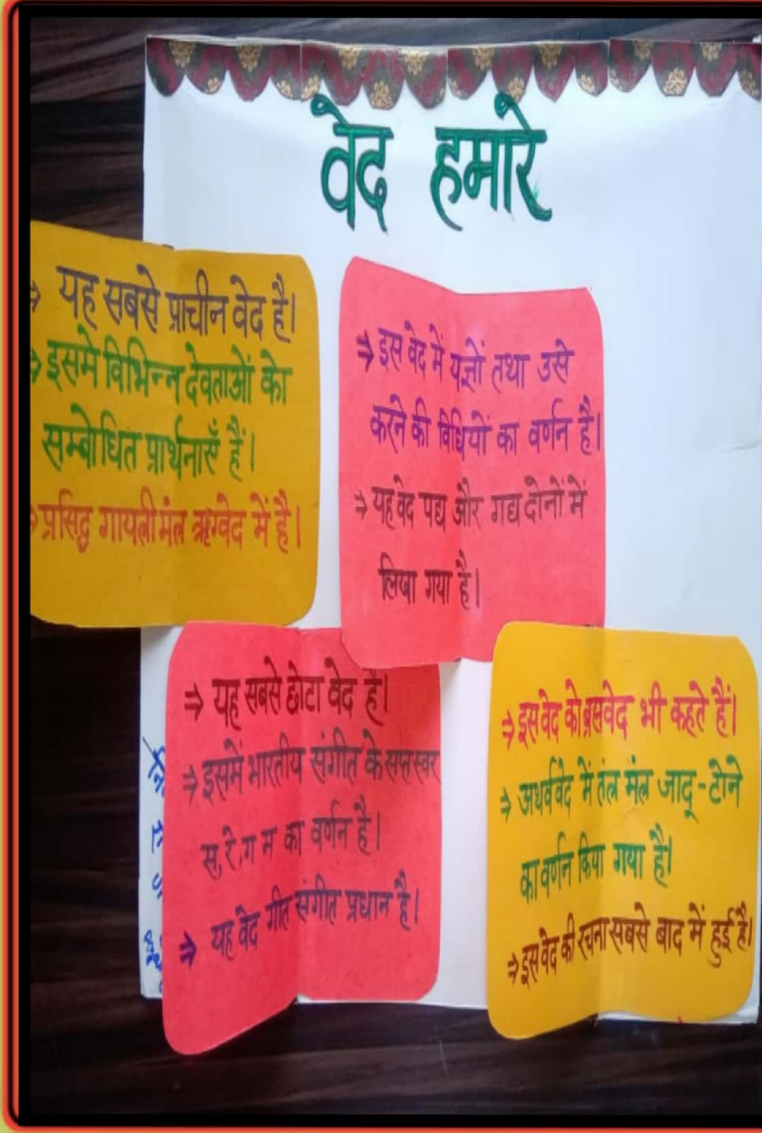 वेद हमारे
⇒ यह सबसे प्राचीन वेद है।
⇒ इसमे विभिन्न देवताओं को
सम्बोधित प्रार्थनाएँ हैं।
⇒ प्रसिद्ध गायत्री मंत्र ऋग्वेद में है।
⇒ इस वेद में यज्ञों तथा उसे
करने की विधियों का वर्णन है।
⇒ यह वेद पद्य और गद्य दोनों में
लिखा गया है।
⇒ यह सबसे छोटा वेद है।
⇒ इसमें भारतीय संगीत के सप्तस्वर
स, रे, ग म का वर्णन है।
⇒ यह वेद गीत संगीत प्रधान है।
⇒ इस वेद को ब्रह्मवेद भी कहते हैं।
⇒ अथर्ववेद में तंत्र मंत्र जादू-टोने
का वर्णन किया गया है।
⇒ इस वेद की रचना सबसे बाद में हुई है।